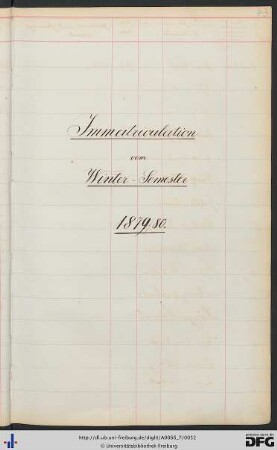 Immatriculation
vom
Winter-Semester
1879/80.
http://dl.ub.uni-freiburg.de/diglit/A0066_7/0012
© Universitätsbibliothek Freiburg
DFG